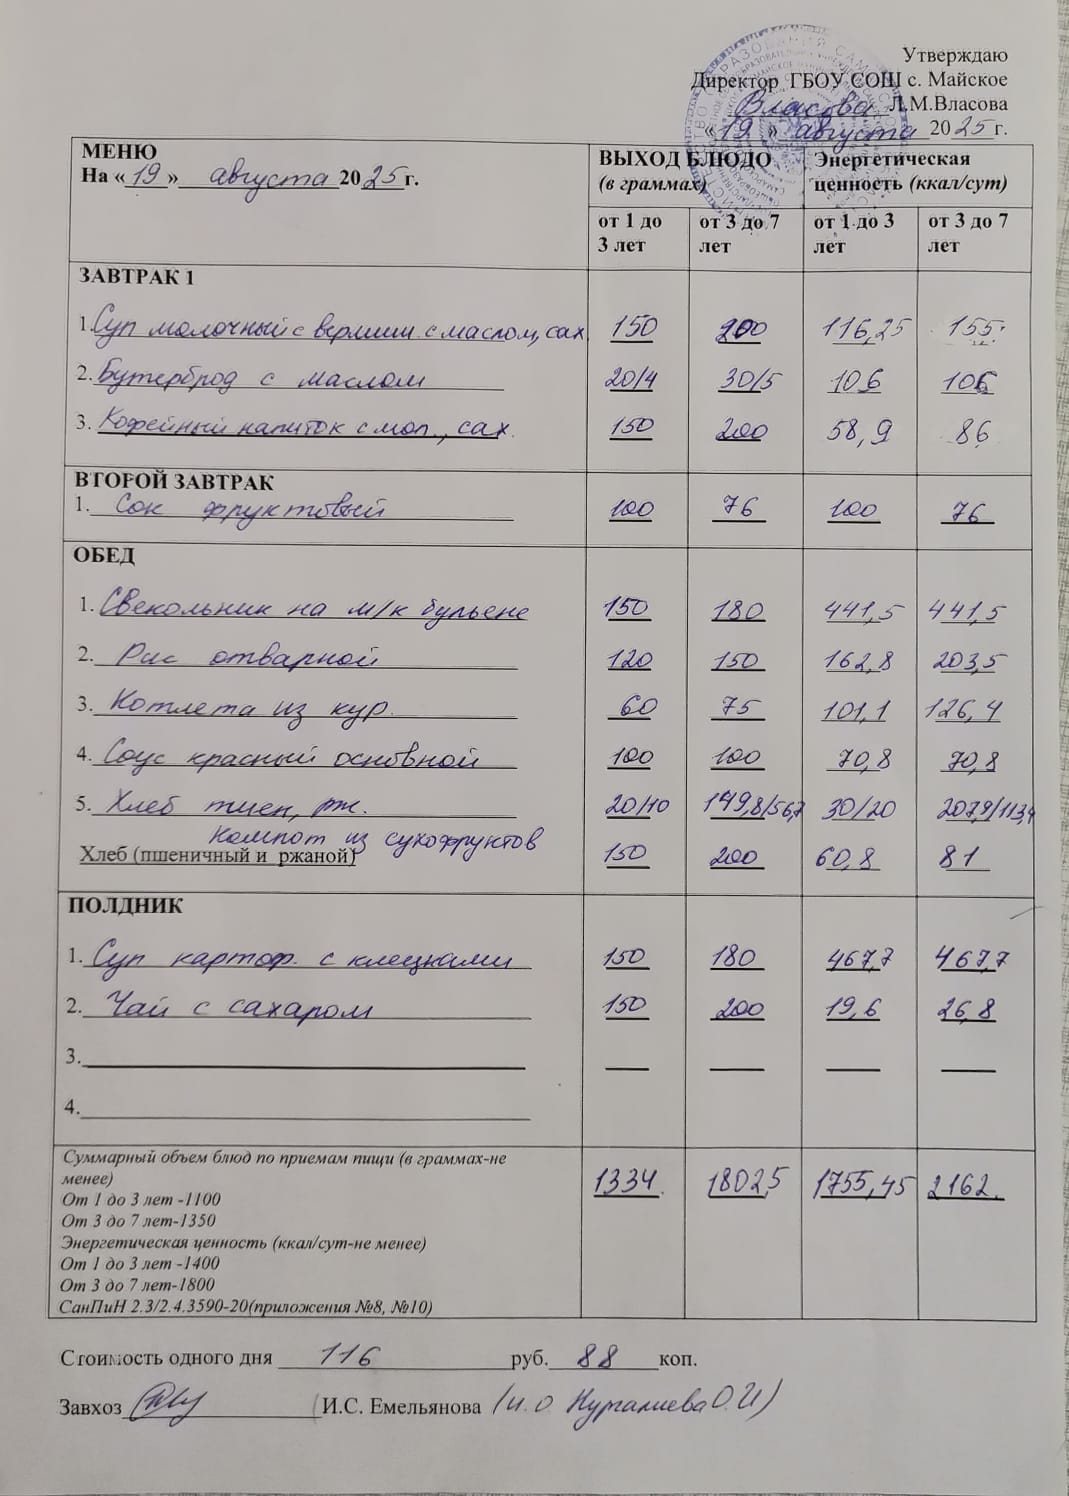 Утверждаю
Директор ГБОУ СОШ с. Майское
Власова Л.М.Власова
«19» августа 2025г.
МЕНЮ
На «19» августа 2025г.
ВЫХОД БЛЮДО
(в граммах)
Энергетическая
ценность (ккал/сут)
от 1 до 3 лет
от 3 до 7 лет
от 1 до 3 лет
от 3 до 7 лет
ЗАВТРАК 1
1. Суп молочный с вермиш. с маслом, сах 150 200 116,25 155
2. Бутерброд с маслом 20/4 30/5 106 106
3. Кофейный напиток с мол., сах. 150 200 58,9 86
ВТОРОЙ ЗАВТРАК
1. Сок фруктовый 100 76 100 76
ОБЕД
1. Свекольник на м/к бульене 150 180 441,5 441,5
2. Рис отварной 120 150 162,8 203,5
3. Котлета из кур. 60 75 101,1 126,4
4. Соус красный основной 100 100 70,8 70,8
5. Хлеб пшен, рж. 20/10 149,8/56,7 30/20 207,9/113,4
Компот из сухофруктов
Хлеб (пшеничный и ржаной) 150 200 60,8 81
ПОЛДНИК
1. Суп картоф. с клецками 150 180 467,7 467,7
2. Чай с сахаром 150 200 19,6 26,8
3.
4.
Суммарный объем блюд по приемам пищи (в граммах-не
менее)
1334 1802,5 1755,45 2162.
От 1 до 3 лет -1100
От 3 до 7 лет-1350
Энергетическая ценность (ккал/сут-не менее)
От 1 до 3 лет -1400
От 3 до 7 лет-1800
СанПиН 2.3/2.4.3590-20(приложения №8, №10)
Стоимость одного дня 116 руб. 88 коп.
Завхоз И.С. Емельянова (и.о. Нургалиева О.И)